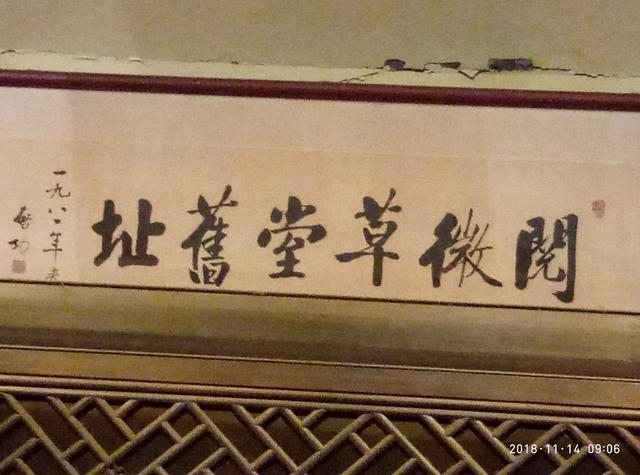 閱微草堂舊址
一九八八年
启功
2018·11·14 09:06